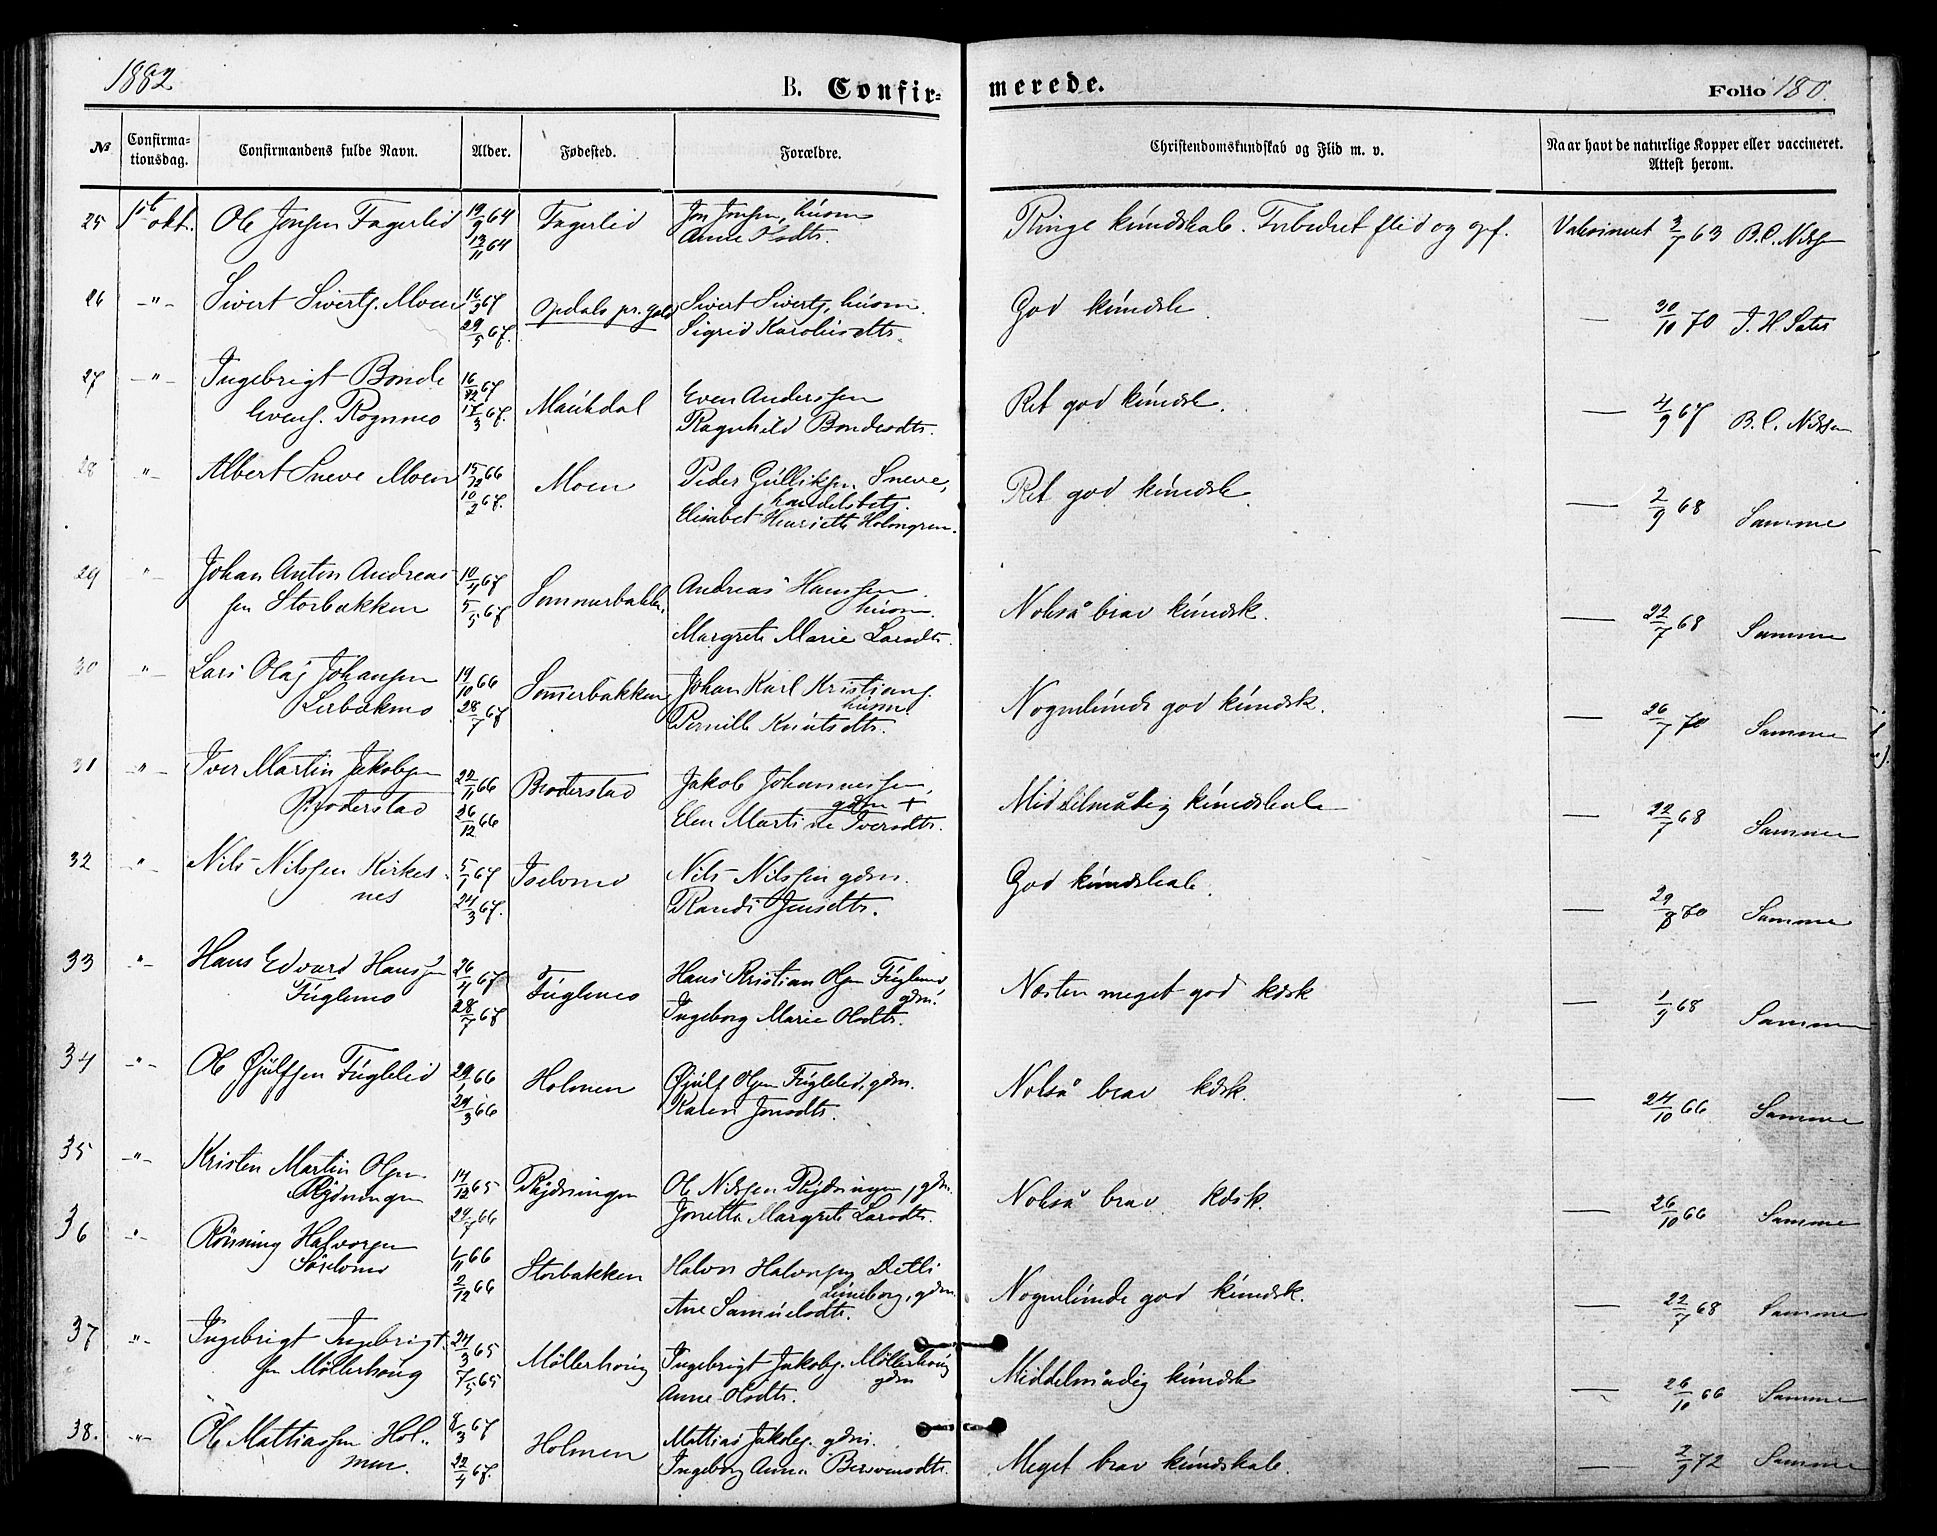 1882 B. Confir- merede. Folio 180.
№ Confirma- tionsdag. Confirmandens fulde Navn. Alder. Fødested. Forældre. Christendomskundskab og Flid m. v. Naar havt de naturlige Kopper eller vaccineret. Attest herom.
25 1st okt. Ole Jonsen Fagerlid 19/9 64 Fagerlid Jon Jonsen, husm Ringe kundskab. Forbedret flid og opf. Vaksineret 3/7 63 B.C. Nilsen
13/11 64 Anne Olsdtr.
26 -"- Sivert Siverts. Moen 16/3 67 Opdals pr. gjeld Sivert Siverts, husm. God kundsk. — 30/10 70 J. H. Sater
29/5 67. Sigrid Karolusdtr.
27 -"- Ingebrigt Bonde 16/12 67 Maukdal Even Anderssen Ret god kundsk. — 4/9 67 B. C. Nilsen
Evens. Rognmo 17/3 67. Ragnhild Bondesdtr.
28 " Albert Sneve Moen 15/12 66 Moen Peder Gulliksen Sneve, Ret god kundsk. — 2/9 68 Samme
10/2 67. handelsbetj.
Elisabet Henriette Holmgren.
29 " Johan Anton Andreas- 10/4 67 Sommerbakken Andreas Hanssen Nokså brav kundsk. — 22/7 68 Samme
sen Storbakken 5/5 67 husm.
Margrete Marie Larsdtr.
30 " Lars Olaj Johansen 19/10 66 Somerbakken Johan Karl Kristians. Nogenlunde god kundsk. — 26/7 70 Samme
Lerbakmo 28/7 67 husm.
Pernille Knutsdtr.
31 -"- Iver Martin Jakobsen 22/11 66 Broderstad Jakob Johannessen, Middelmådig kundskab — 22/7 68 Samme
Broderstad 26/12 66 gdm +
Elen Martine Iversdtr.
32 -"- Nils Nilssen Kirkes- 5/1 67 Iselvmo Nils Nilssen gdm. God kundskab. — 29/8 70 Samme
nes 24/3 67. Randi Jensdtr.
33 -"- Hans Edvard Hanssen 26/4 67 Fuglmo Hans Kristian Olsen Fuglmo Næsten meget god kdsk — 1/9 68 Samme
Fuglmo 28/7 67 gdm.
Ingeborg Marie Olsdtr.
34 -"- Ole Øjulfsen Fuglelid 29/1 66 Holmen Øjulf Olsen Fuglelid, gdm. Nokså brav kdsk. — 24/10 66 Samme
29/3 66 Karen Jonsdtr.
35 -"- Kristen Martin Olsen 14/12 65 Rydningen Ole Nilssen Rydningen, gdm. Nokså brav kdsk. — 26/10 66 Samme
Rydningen 29/7 66 Jonetta Margrete Larsdtr.
36 -"- Rønning Halvorsen 6/11 66 Storbakken Halvor Halvorsen Detli Nogenlunde god kundsk. — 22/7 68 Samme
2/12 66 Luneborg, gdm.
Ane Samuelsdtr.
37 -"- Ingebrigt Ingebrigt- 24/3 65 Møllerhoug Ingebrigt Jakobs. Møllerhoug Middelmådig kundsk — 26/10 66 Samme
sen Møllerhoug 7/5 65 gdm
Anne Olsdtr.
38. -"- Ole Mattiassen Hol- 8/3 67 Holmen Mattias Jakobs. gdm. Meget brav kundskab. — 2/9 72 Samme
men. 22/4 67. Ingeborg Anna Bersvensdtr.